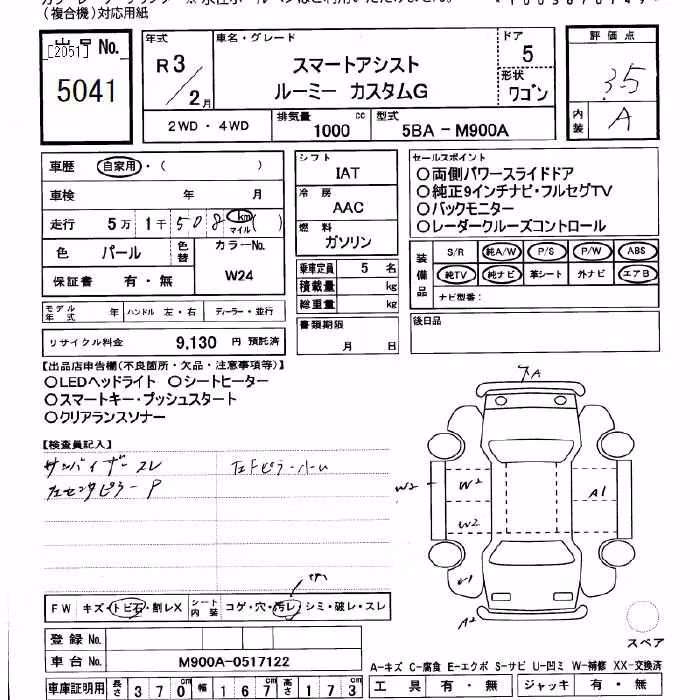 (複合機)対応用紙
出品 No.
[2051]
5041
年式
R3/2月
車名・グレード
スマートアシスト
ルーミー カスタムG
ドア
5
形状
ワゴン
評価点
3.5
内装
A
2WD・4WD
排気量
1000 cc
型式
5BA-M900A
車歴 自家用・( )
車検 年 月
走行 5万 1千 508 km マイル ( )
色 パール
色替
カラーNo.
W24
保証書 有・無
モデル年式 年
ハンドル 左・右
ディーラー・並行
リサイクル料金 9,130 円 預託済
シフト
IAT
冷房
AAC
燃料
ガソリン
乗車定員 5 名
積載量 kg
総重量 kg
書類期限
月 日
セールスポイント
〇両側パワースライドドア
〇純正9インチナビ・フルセグTV
〇バックモニター
〇レーダークルーズコントロール
装備品
S/R 純A/W P/S P/W ABS
純TV 純ナビ 革シート 外ナビ エアB
ナビ型番:
後日品
【出品店申告欄(不良箇所・欠品・注意事項等)】
〇LEDヘッドライト 〇シートヒーター
〇スマートキー・プッシュスタート
〇クリアランスソナー
【検査員記入】
サンバイザースレ
左センタピラーP
A
W2
W2
W2
A1
A2
FW キズ・トビ石・割レX
シート内装 コゲ・穴・汚レ・シミ・破レ・スレ
登録 No.
車台 No. M900A-0517122
車庫証明用 長さ 370 cm 幅 167 cm 高さ 173 cm
スペア
A-キズ C-腐食 E-エクボ S-サビ U-凹ミ W-補修 XX-交換済
工具 有・無 ジャッキ 有・無